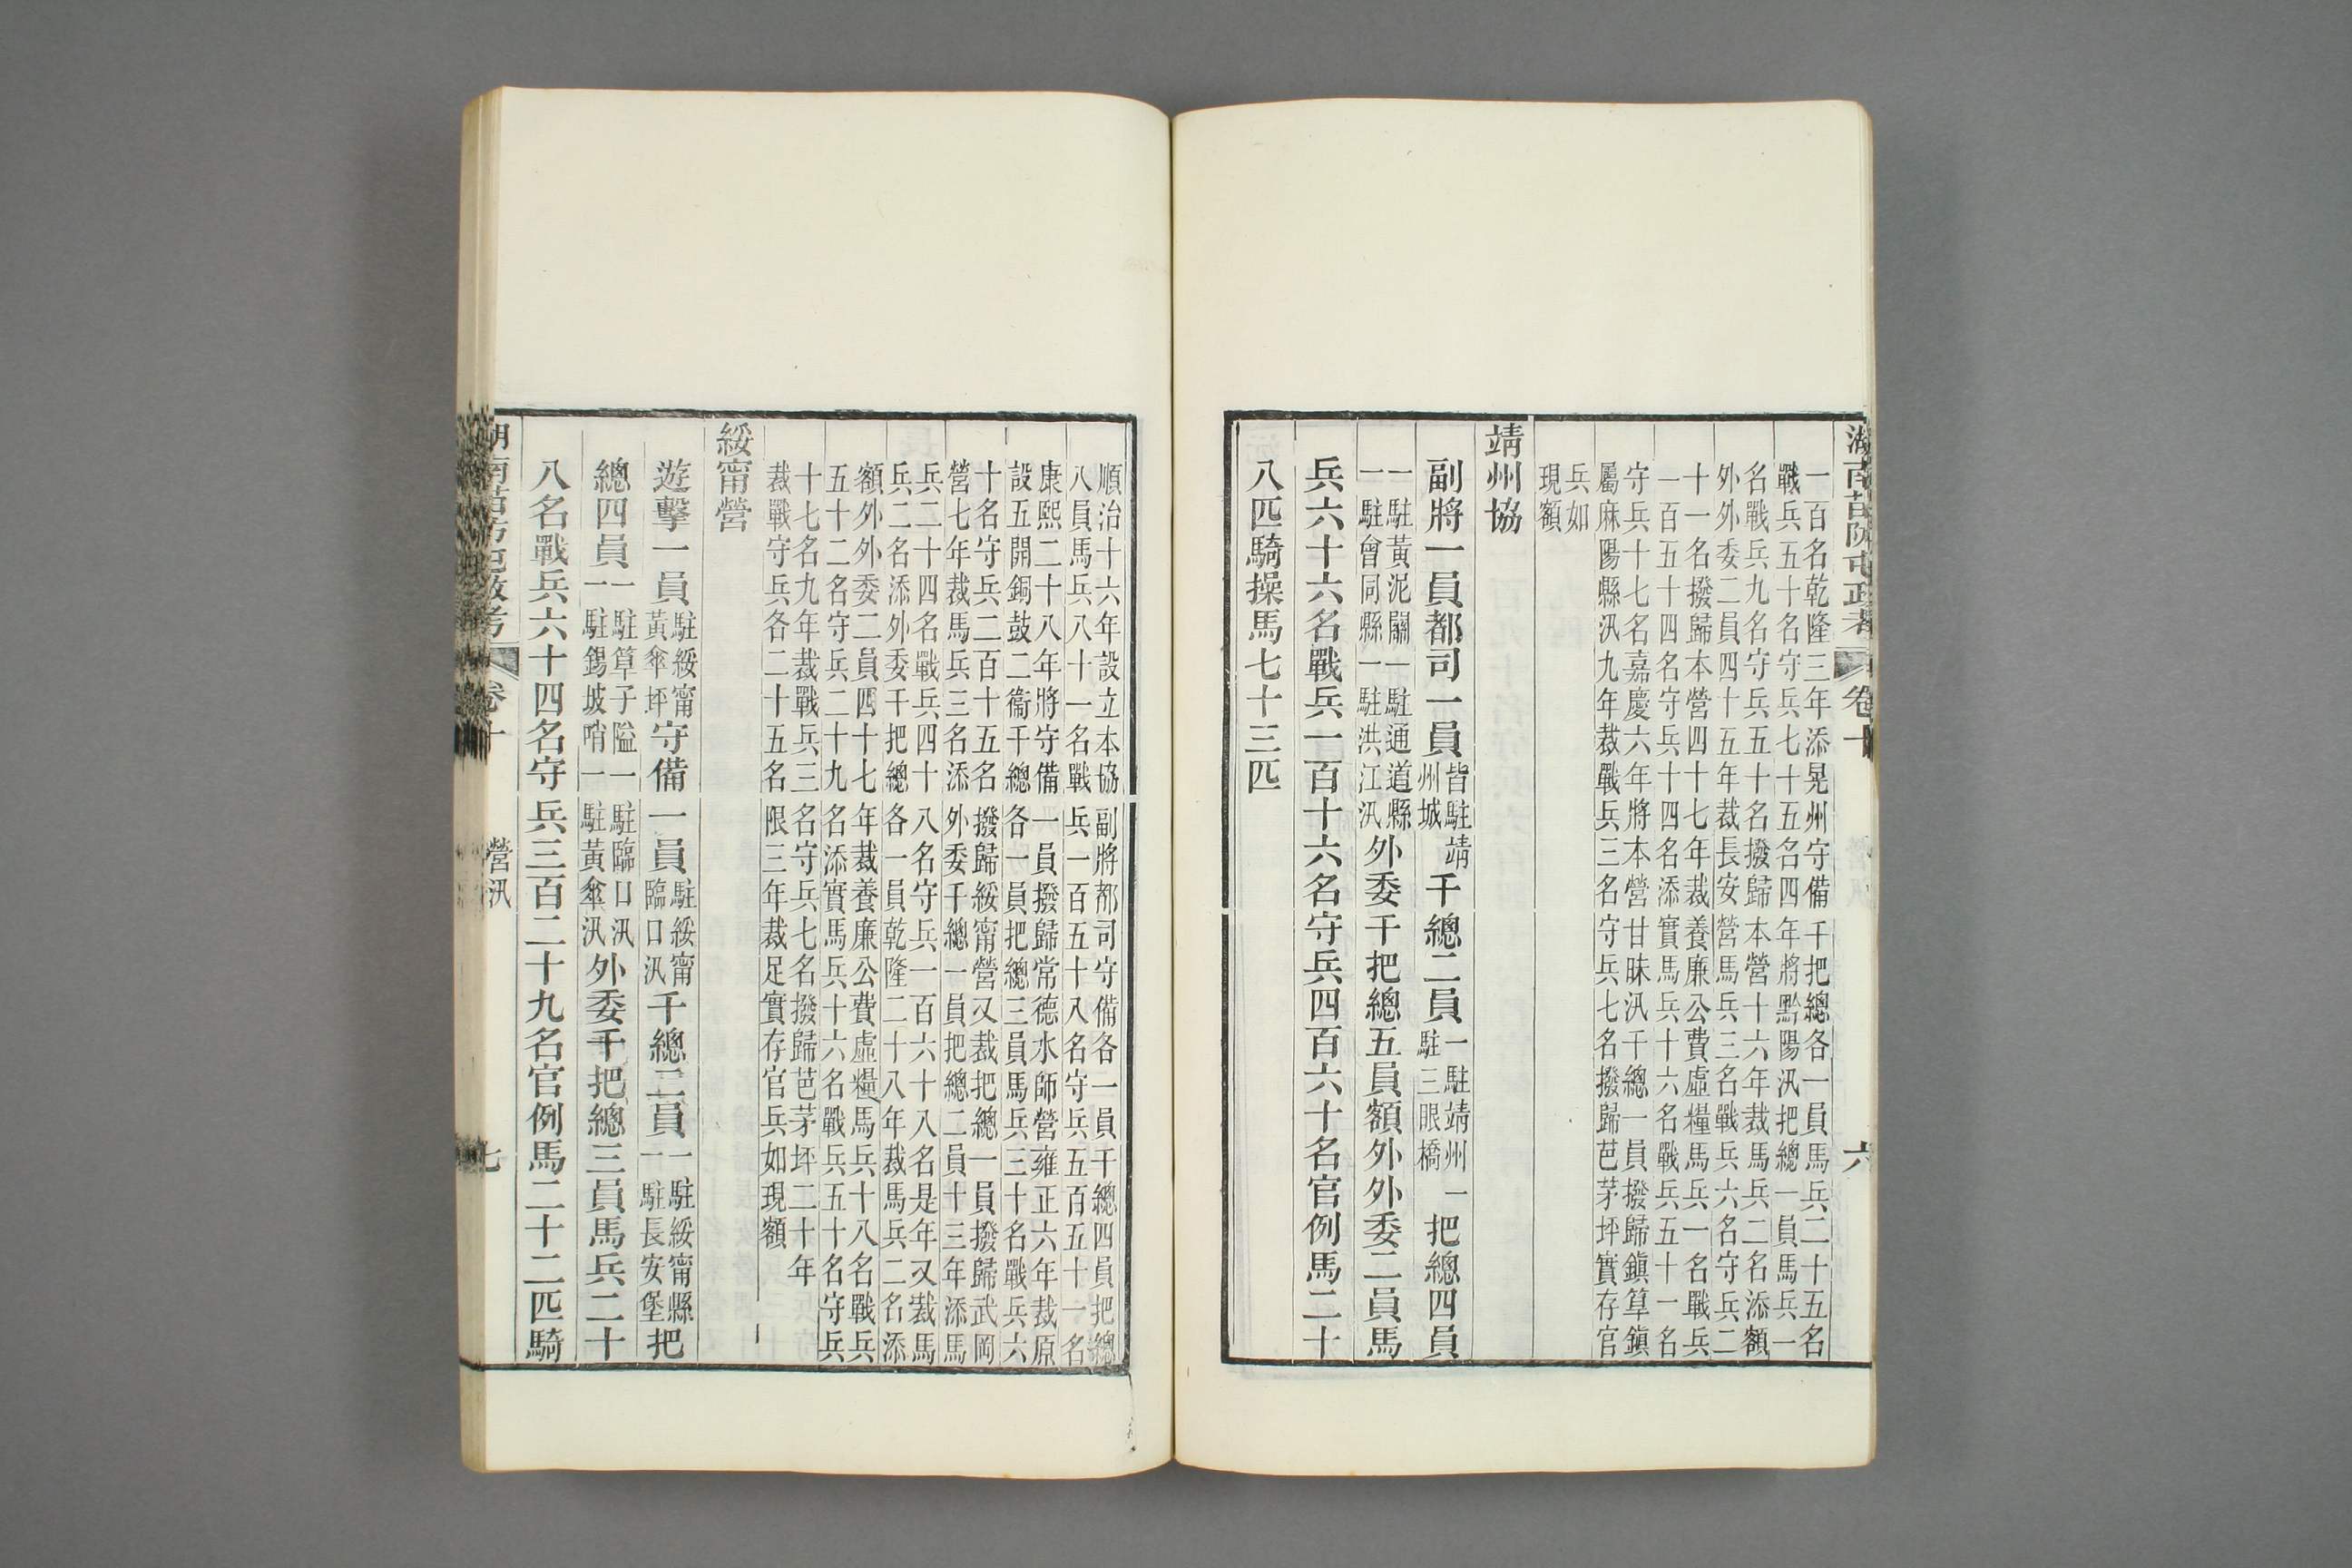 湖南苗防屯政考 卷十 六
一百名乾隆三年添晃州守備千把總各一員馬兵二十五名
戰兵五十名守兵七十五名四年將黔陽汛把總一員馬兵一
名戰兵九名守兵五十名撥歸本營十六年裁馬兵二名添額
外外委二員四十五年裁長安營馬兵三名戰兵六名守兵二
十一名撥歸本營四十七年裁養廉公費虛糧馬兵一名戰兵
一百五十四名守兵十四名添實馬兵十六名戰兵五十一名
守兵十七名嘉慶六年將本營甘昧汛千總一員撥歸鎮筸鎮
屬麻陽縣汛九年裁戰兵三名守兵七名撥歸芭茅坪實存官
兵如
現額
靖州協
副將一員都司一員皆駐靖州城千總二員一駐靖州一駐三眼橋把總四員
一駐黃泥關一駐通道縣一駐會同縣一駐洪江汛外委千把總五員額外外委二員馬
兵六十六名戰兵一百十六名守兵四百六十名官例馬二十
八匹騎操馬七十三匹
順治十六年設立本協副將都司守備各一員千總四員把總
八員馬兵八十一名戰兵一百五十八名守兵五百五十一名
康熙二十八年將守備一員撥歸常德水師營雍正六年裁原
設五開銅鼓二衞千總各一員把總三員馬兵三十名戰兵六
十名守兵二百十五名撥歸綏甯營又裁把總一員撥歸武岡
營七年裁馬兵三名添外委千總一員把總二員十三年添馬
兵二十四名戰兵四十八名守兵一百六十八名是年又裁馬
兵二名添外委千把總各一員乾隆二十八年裁馬兵二名添
額外外委二員四十七年裁養廉公費虛糧馬兵十八名戰兵
五十二名守兵二十九名添實馬兵十六名戰兵五十名守兵
十七名九年裁戰兵三名守兵七名撥歸芭茅坪二十年
裁戰守兵各二十五名限三年裁足實存官兵如現額
綏甯營
遊擊一員駐綏甯黃傘坪守備一員駐綏甯臨口汛千總二員一駐綏甯縣一駐長安堡把
總四員一駐筸子隘一駐錫坡哨一駐臨口汛一駐黃傘汛外委千把總三員馬兵二十
八名戰兵六十四名守兵三百二十九名官例馬二十二匹騎
湖南苗防屯政考 卷十 營汛 七